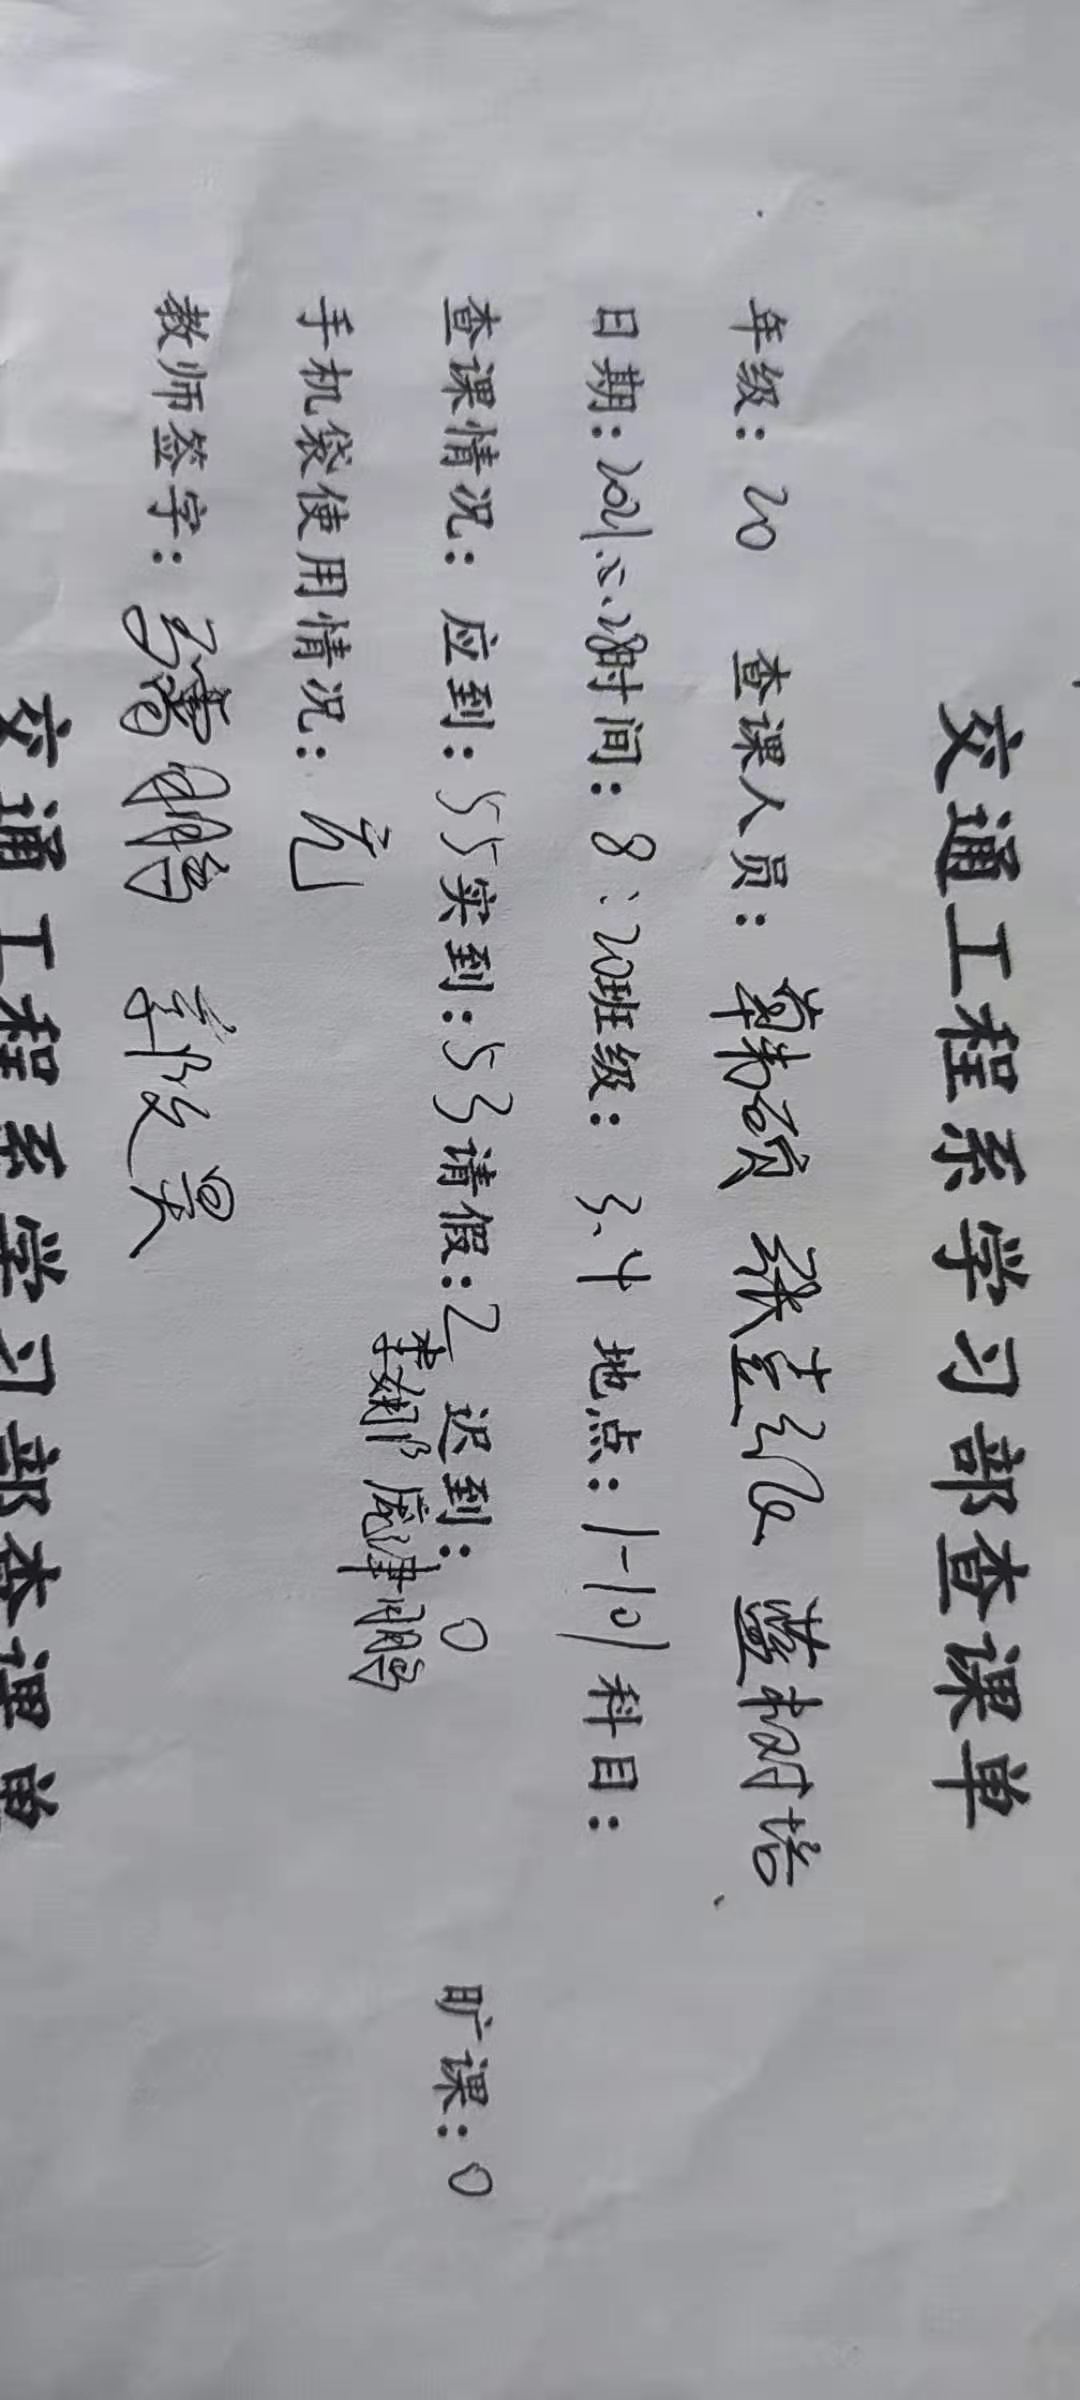 交通工程系学习部查课单
年级：20 查课人员：韩硕 张壹弛 蓝树培
日期：2021.2.28时间：8：20班级：3.4 地点：1-101科目：
查课情况：应到：55实到：53请假：2 迟到：0 旷课：0
手机袋使用情况：无
教师签字：
交通工程系学习部查课单